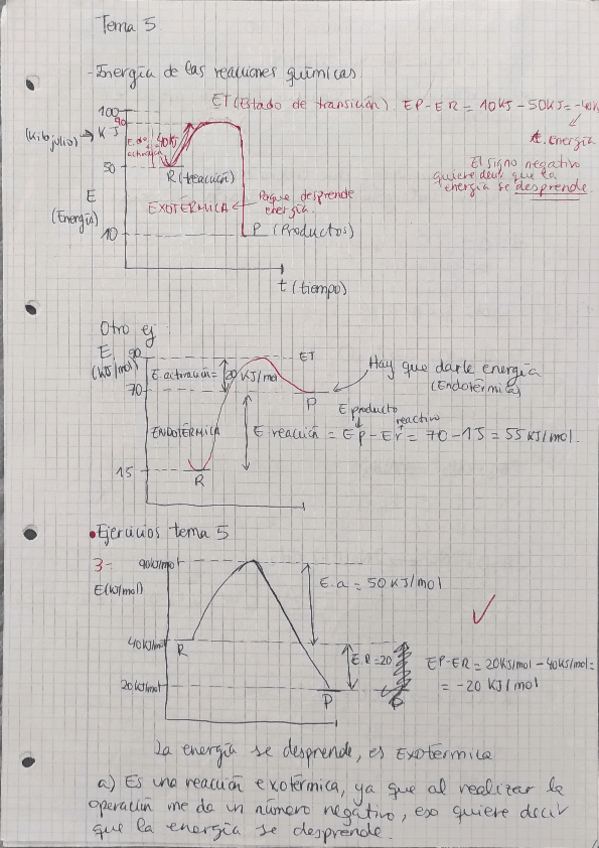 Tema 5
- Energía de las reacciones químicas.
ET (Estado de transición) EP-ER = 10KJ - 50KJ = -40KJ
100
90
(Kilojulio) → KJ
E. de activación
40KJ
E. energía
El signo negativo
quiere decir que la
energía se desprende.
50
R (reacción)
E
(Energía)
EXOTÉRMICA ← Porque desprende
energía.
10
P (Productos)
t (tiempo)
Otro ej
E
(KJ/mol)
90
ET
E. activación = 20 KJ/mol
Hay que darle energía
(Endotérmica)
70
P
E producto
reactivo
ENDOTÉRMICA
E reacción = Ep - Er = 70 - 15 = 55 KJ/mol.
15
R
• Ejercicios tema 5
3-
90KJ/mol
E (KJ/mol)
E.a = 50 KJ/mol
40KJ/mol
R
E.R = 20
EP-ER = 20KJ/mol - 40KJ/mol =
= -20 KJ/mol
20KJ/mol
P
La energía se desprende, es Exotérmica
a) Es una reacción exotérmica, ya que al realizar la
operación me da un número negativo, eso quiere decir
que la energía se desprende.